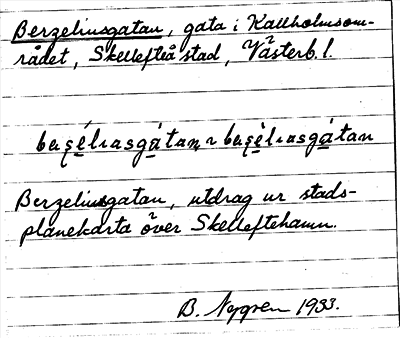 Berzeliusgatan, gata i Kallholmsom-
rådet, Skellefteå stad, Västerb. l.
Berzeliusgatan, utdrag ur stads-
planekarta över Skelleftehamn.
B. Nygren 1933.